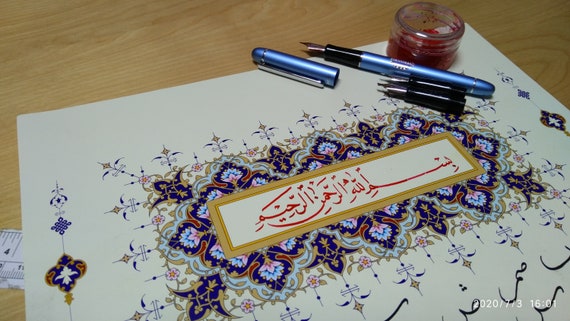 بسم الله الرحمن الرحیم
2020/7/3 16:01